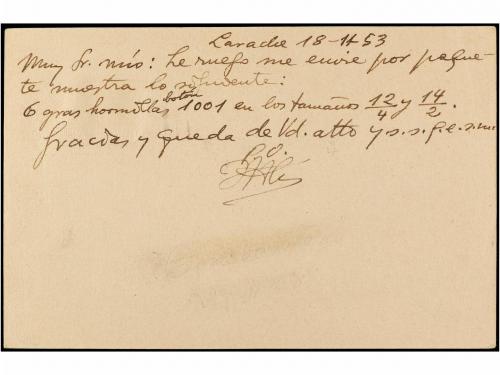 Larache 18-11-53
Muy Sr. mío: Le ruego me envie por paque-
te muestra lo siguiente:
botón
6 gras hormillas 1001 en los tamaños 12/4 y 14/2.
Gracias y queda de Vd. atto y s.s. q.e.s.m.